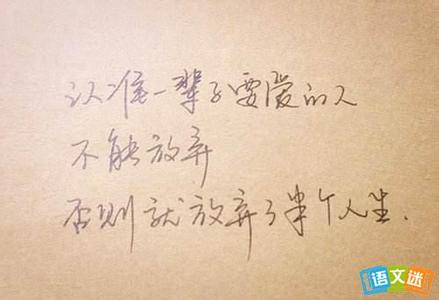 认准一辈子要爱的人
不能放弃
否则就放弃了半个人生.
语文迷